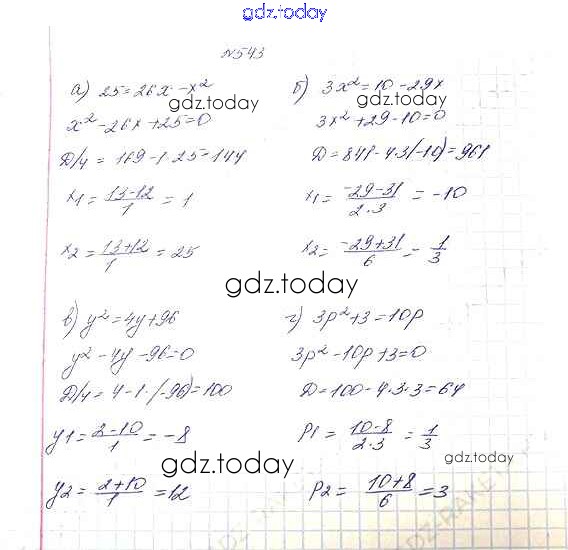 gdz.today
№543
а) 25=26x-x²
gdz.today
x²-26x+25=0
Д/4=169-1·25=144
x1=(13-12)/1=1
x2=(13+12)/1=25
б) 3x²=10-29x
gdz.today
3x²+29-10=0
Д=841-4·3(-10)=961
x1=(-29-31)/(2·3)=-10
x2=(-29+31)/6=1/3
gdz.today
в) y²=4y+96
y²-4y-96=0
Д/4=4-1·(-96)=100
y1=(2-10)/1=-8
gdz.today
y2=(2+10)/1=12
г) 3p²+3=10p
3p²-10p+3=0
Д=100-4·3·3=64
p1=(10-8)/(2·3)=1/3
gdz.today
p2=(10+8)/6=3